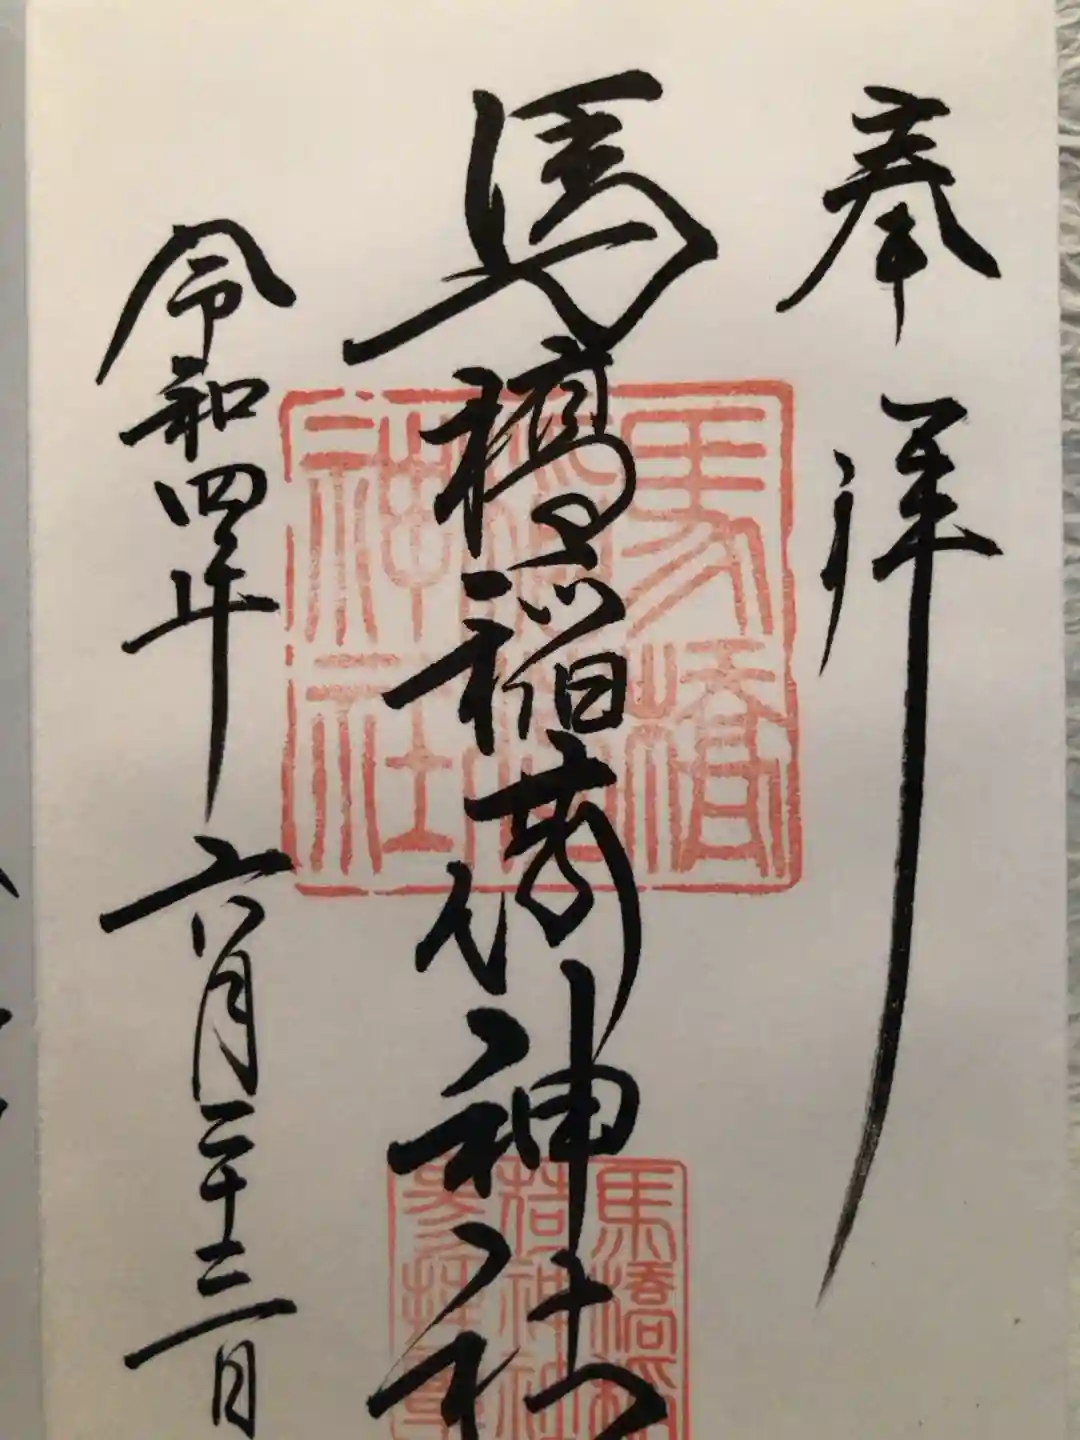 奉拝
馬橋稲荷神社
令和四年六月二十三日
馬橋
稲荷
神社
馬橋稲
荷神社
参拝章